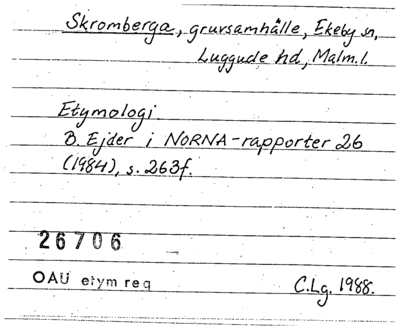 Skromberga, gruvsamhälle, Ekeby sn,
Luggude hd, Malm. l.
Etymologi
B. Ejder i NORNA-rapporter 26
(1984), s. 263f.
26706
OAU etym reg
C.Lg. 1988.